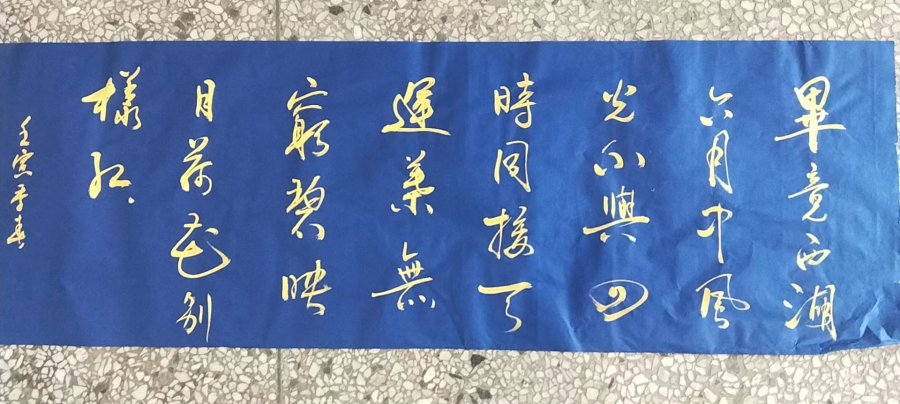 畢竟西湖
六月中風
光不與四
時同接天
蓮葉無
窮碧映
日荷花别
樣紅
壬寅季春